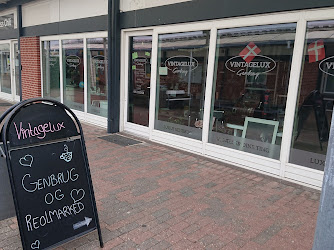 VINTAGELUX
Genbrug
VINTAGELUX
Genbrug
VINTAGELUX
Vintagelux
GENBRUG
OG
REOLMARKED